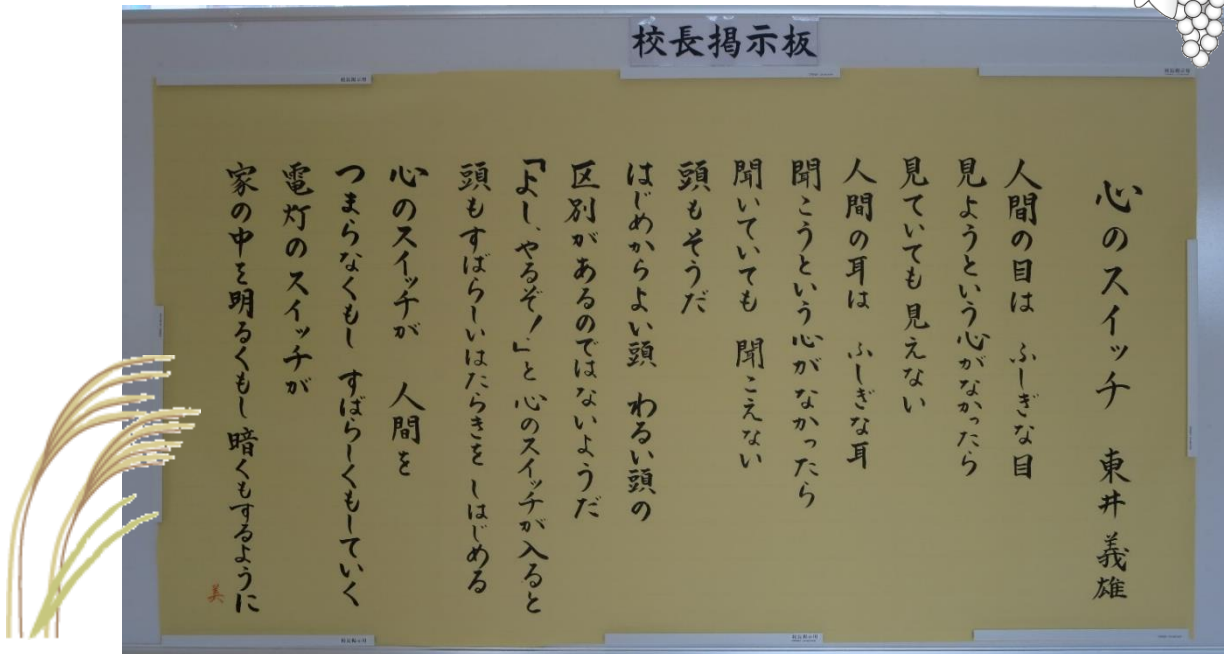 校長掲示板
心のスイッチ　東井義雄
人間の目は　ふしぎな目
見ようという心がなかったら
見ていても 見えない
人間の耳は　ふしぎな耳
聞こうという心がなかったら
聞いていても　聞こえない
頭もそうだ
はじめからよい頭　わるい頭の
区別があるのではないようだ
「よし、やるぞ！」と 心のスイッチが入ると
頭もすばらしいはたらきを しはじめる
心のスイッチが　人間を
つまらなくもし すばらしくもしていく
電灯のスイッチが
家の中を明るくもし 暗くもするように
美